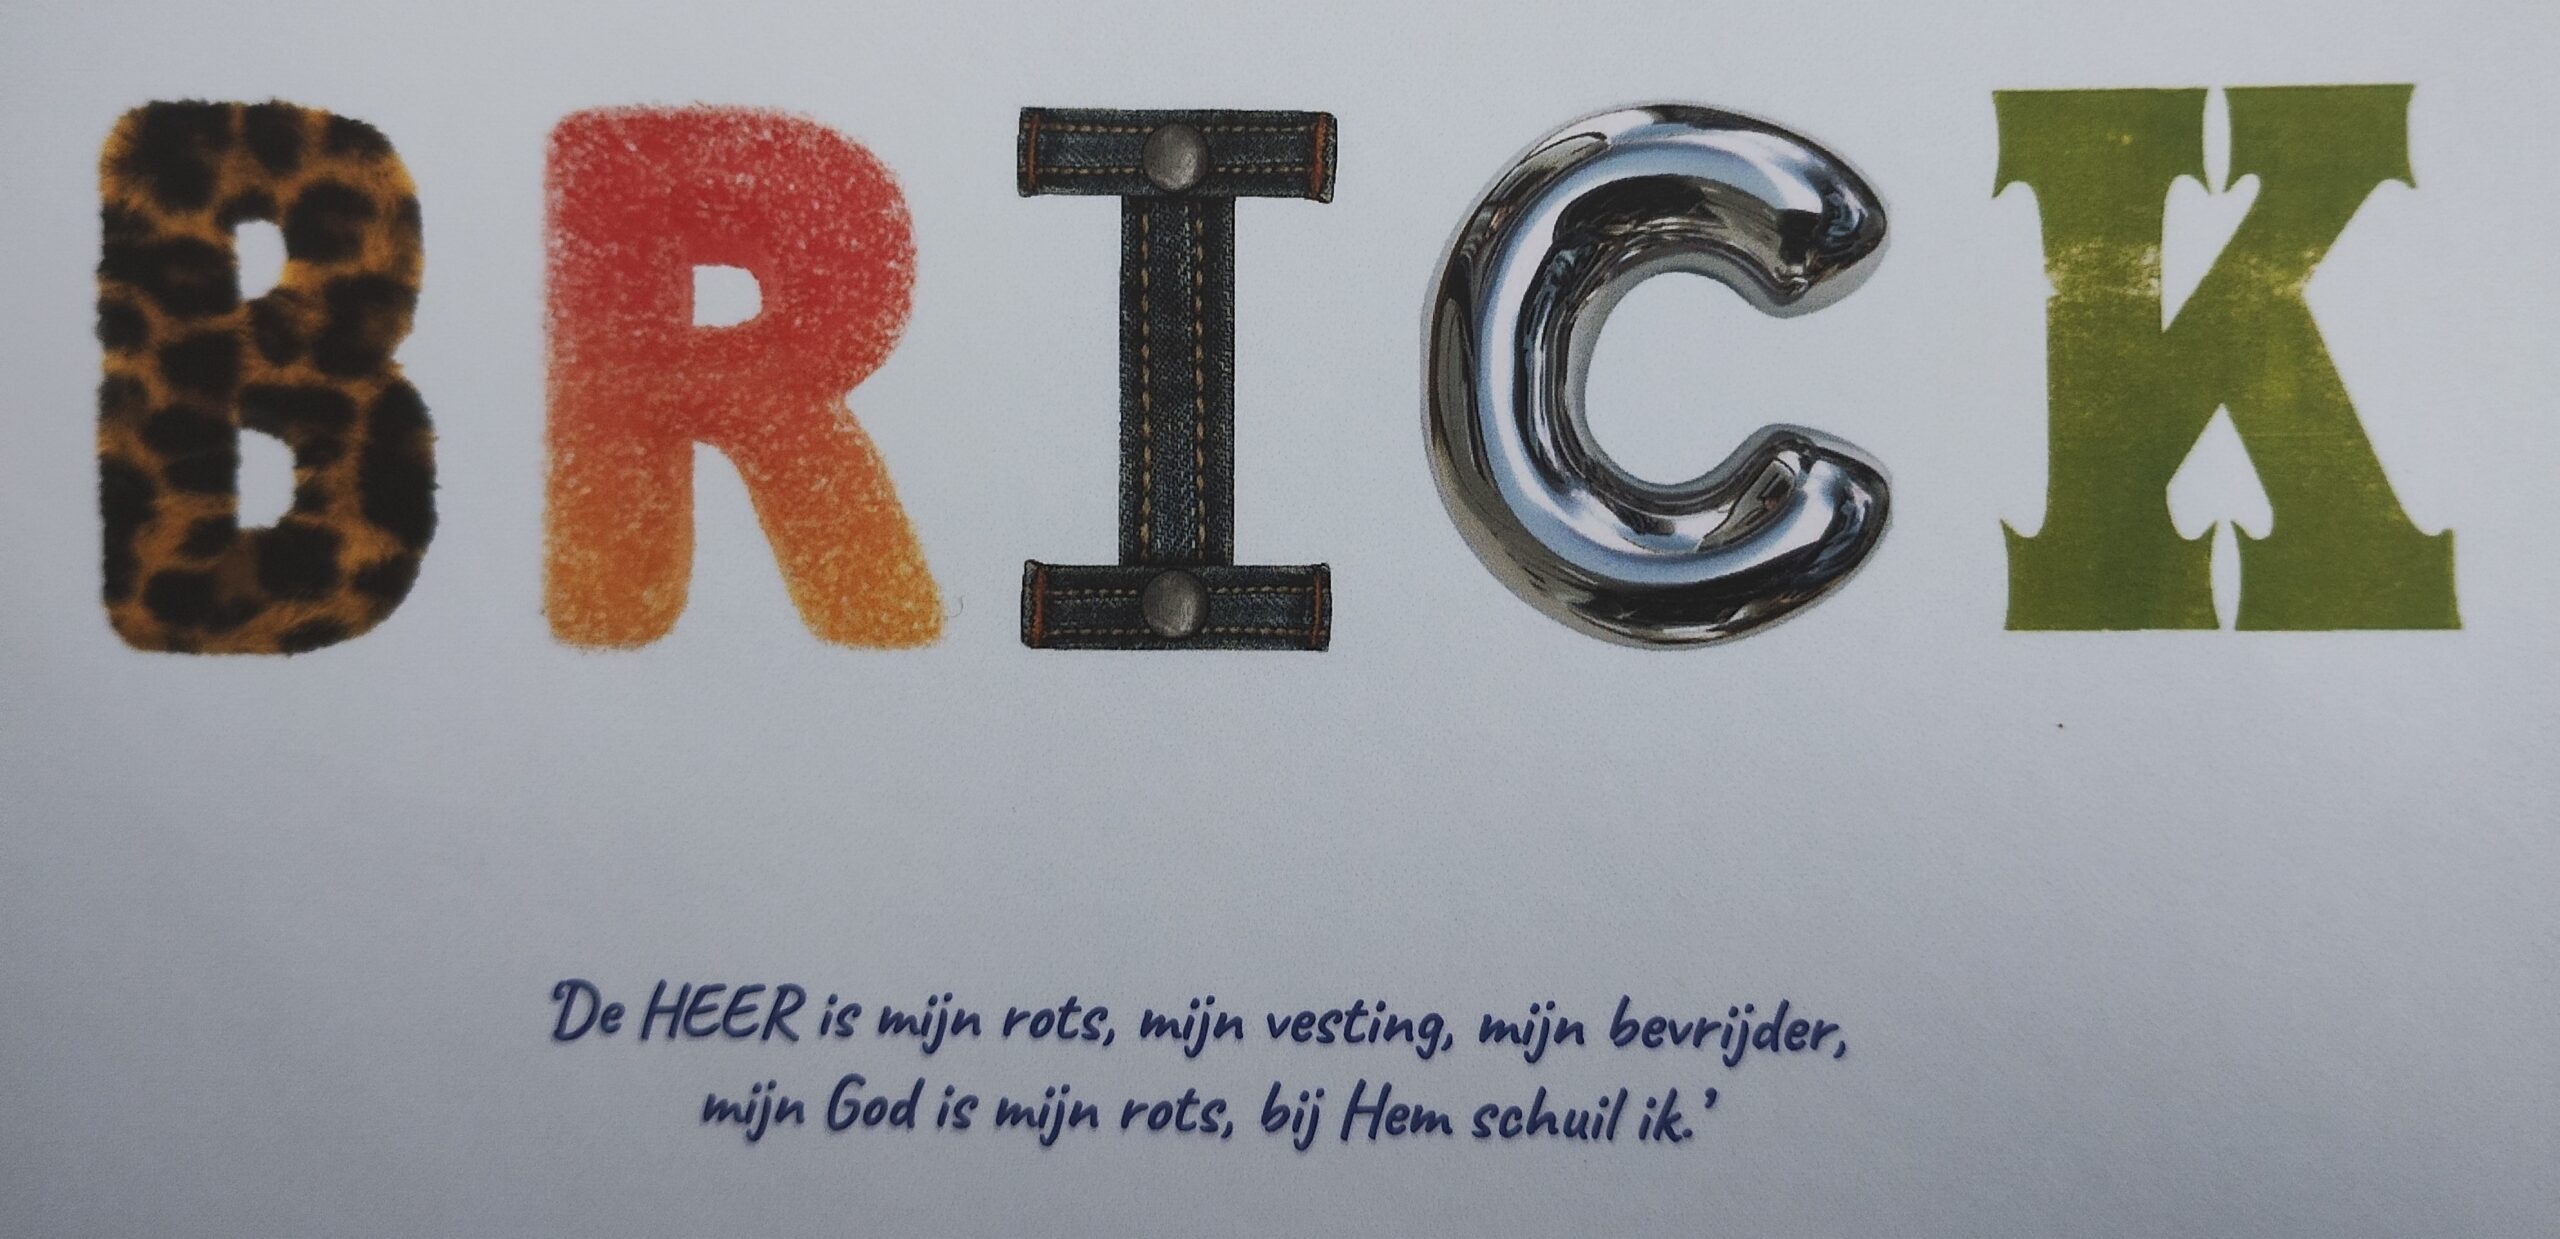 BRICK
'De HEER is mijn rots, mijn vesting, mijn bevrijder,
mijn God is mijn rots, bij Hem schuil ik.'